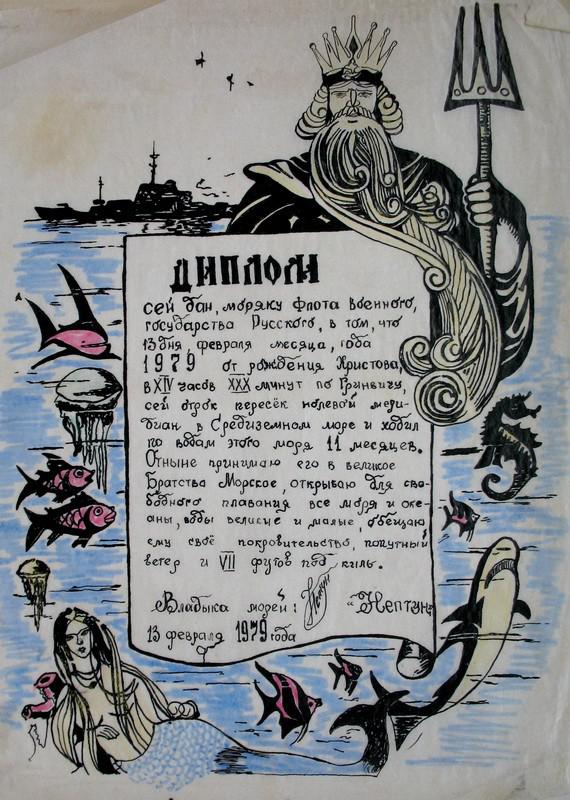 ДИПЛОМ
сей дан, моряку Флота Военного,
государства Русского, в том, что
13 дня, февраля месяца, года
1979 от рождения Христова,
в XIV часов XXX минут по Гринвичу,
сей отрок пересёк нолевой мери-
диан в Средиземном море и ходил
по водам этого моря 11 месяцев.
Отныне принимаю его в великое
Братство Морское, открываю для сво-
бодного плавания все моря и оке-
аны, воды великие и малые, обещаю
ему своё покровительство, попутный
ветер и VII футов под киль.
Владыка морей: Нептун "Нептун"
13 февраля 1979 года